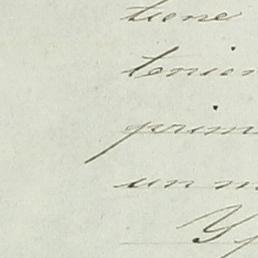 tiene
tenien
prim
un m
Y